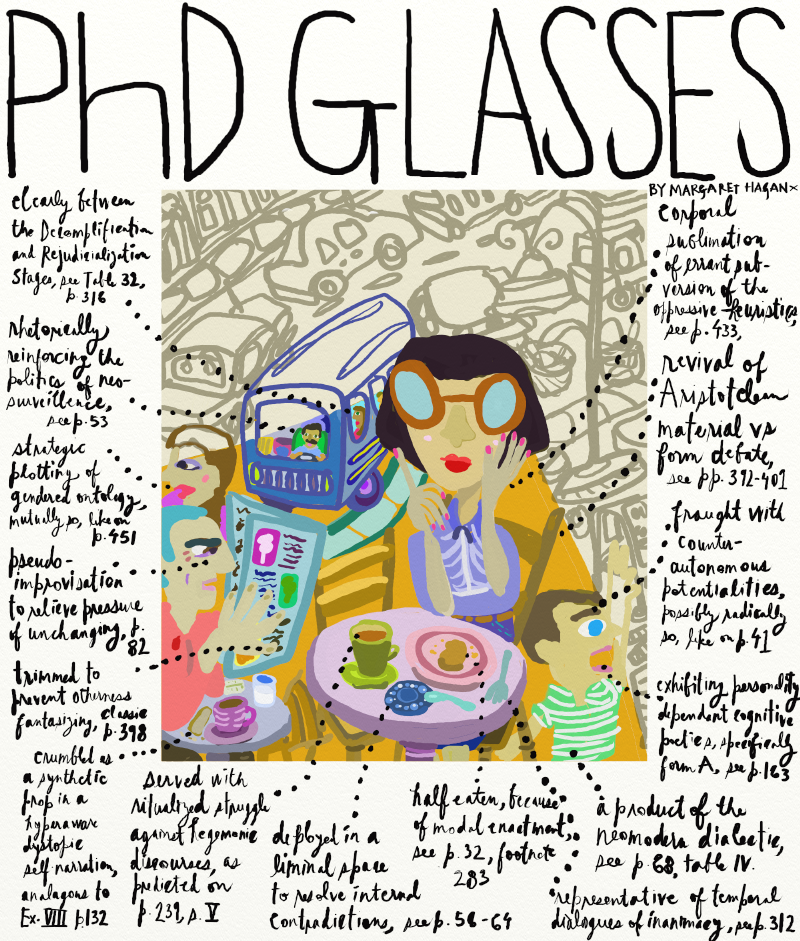 PhD GLASSES
BY MARGARET HAGAN
clearly between
the Decomplification
and Rejudicialization
Stages, see Table 32,
p. 316
rhetorically
reinforcing the
politics of neo-
surveillence,
see p. 53
strategic
plotting of
gendered ontology,
mutually so, like on
p. 451
pseudo-
improvisation
to relieve pressure
of unchanging, p.
82
trimmed to
prevent otherness
fantasizing, classic
p. 398
crumbled as
a synthetic
prop in a
hyperaware
dystopic
self-narration,
analagous to
Ex. VIII p132
served with
ritualized struggle
against hegemonic
discourses, as
predicted on
p. 239, s. V
deployed in a
liminal space
to resolve internal
contradictions, see p. 58-64
half eaten, because
of modal enactment,
see p. 32, footnote
283
a product of the
neomodern dialectic,
see p. 68, table IV.
representative of temporal
dialogues of inanimacy, see p. 312
corporal
sublimation
of errant sub-
version of the
oppressive heuristics,
see p. 433,
revival of
Aristotlean
material vs
form debate,
see pp. 392-401
fraught with
counter-
autonomous
potentialities,
possibly radically
so, like on p. 41
exhibiting personality
dependent cognitive
poetics, specifically
form A, see p. 163